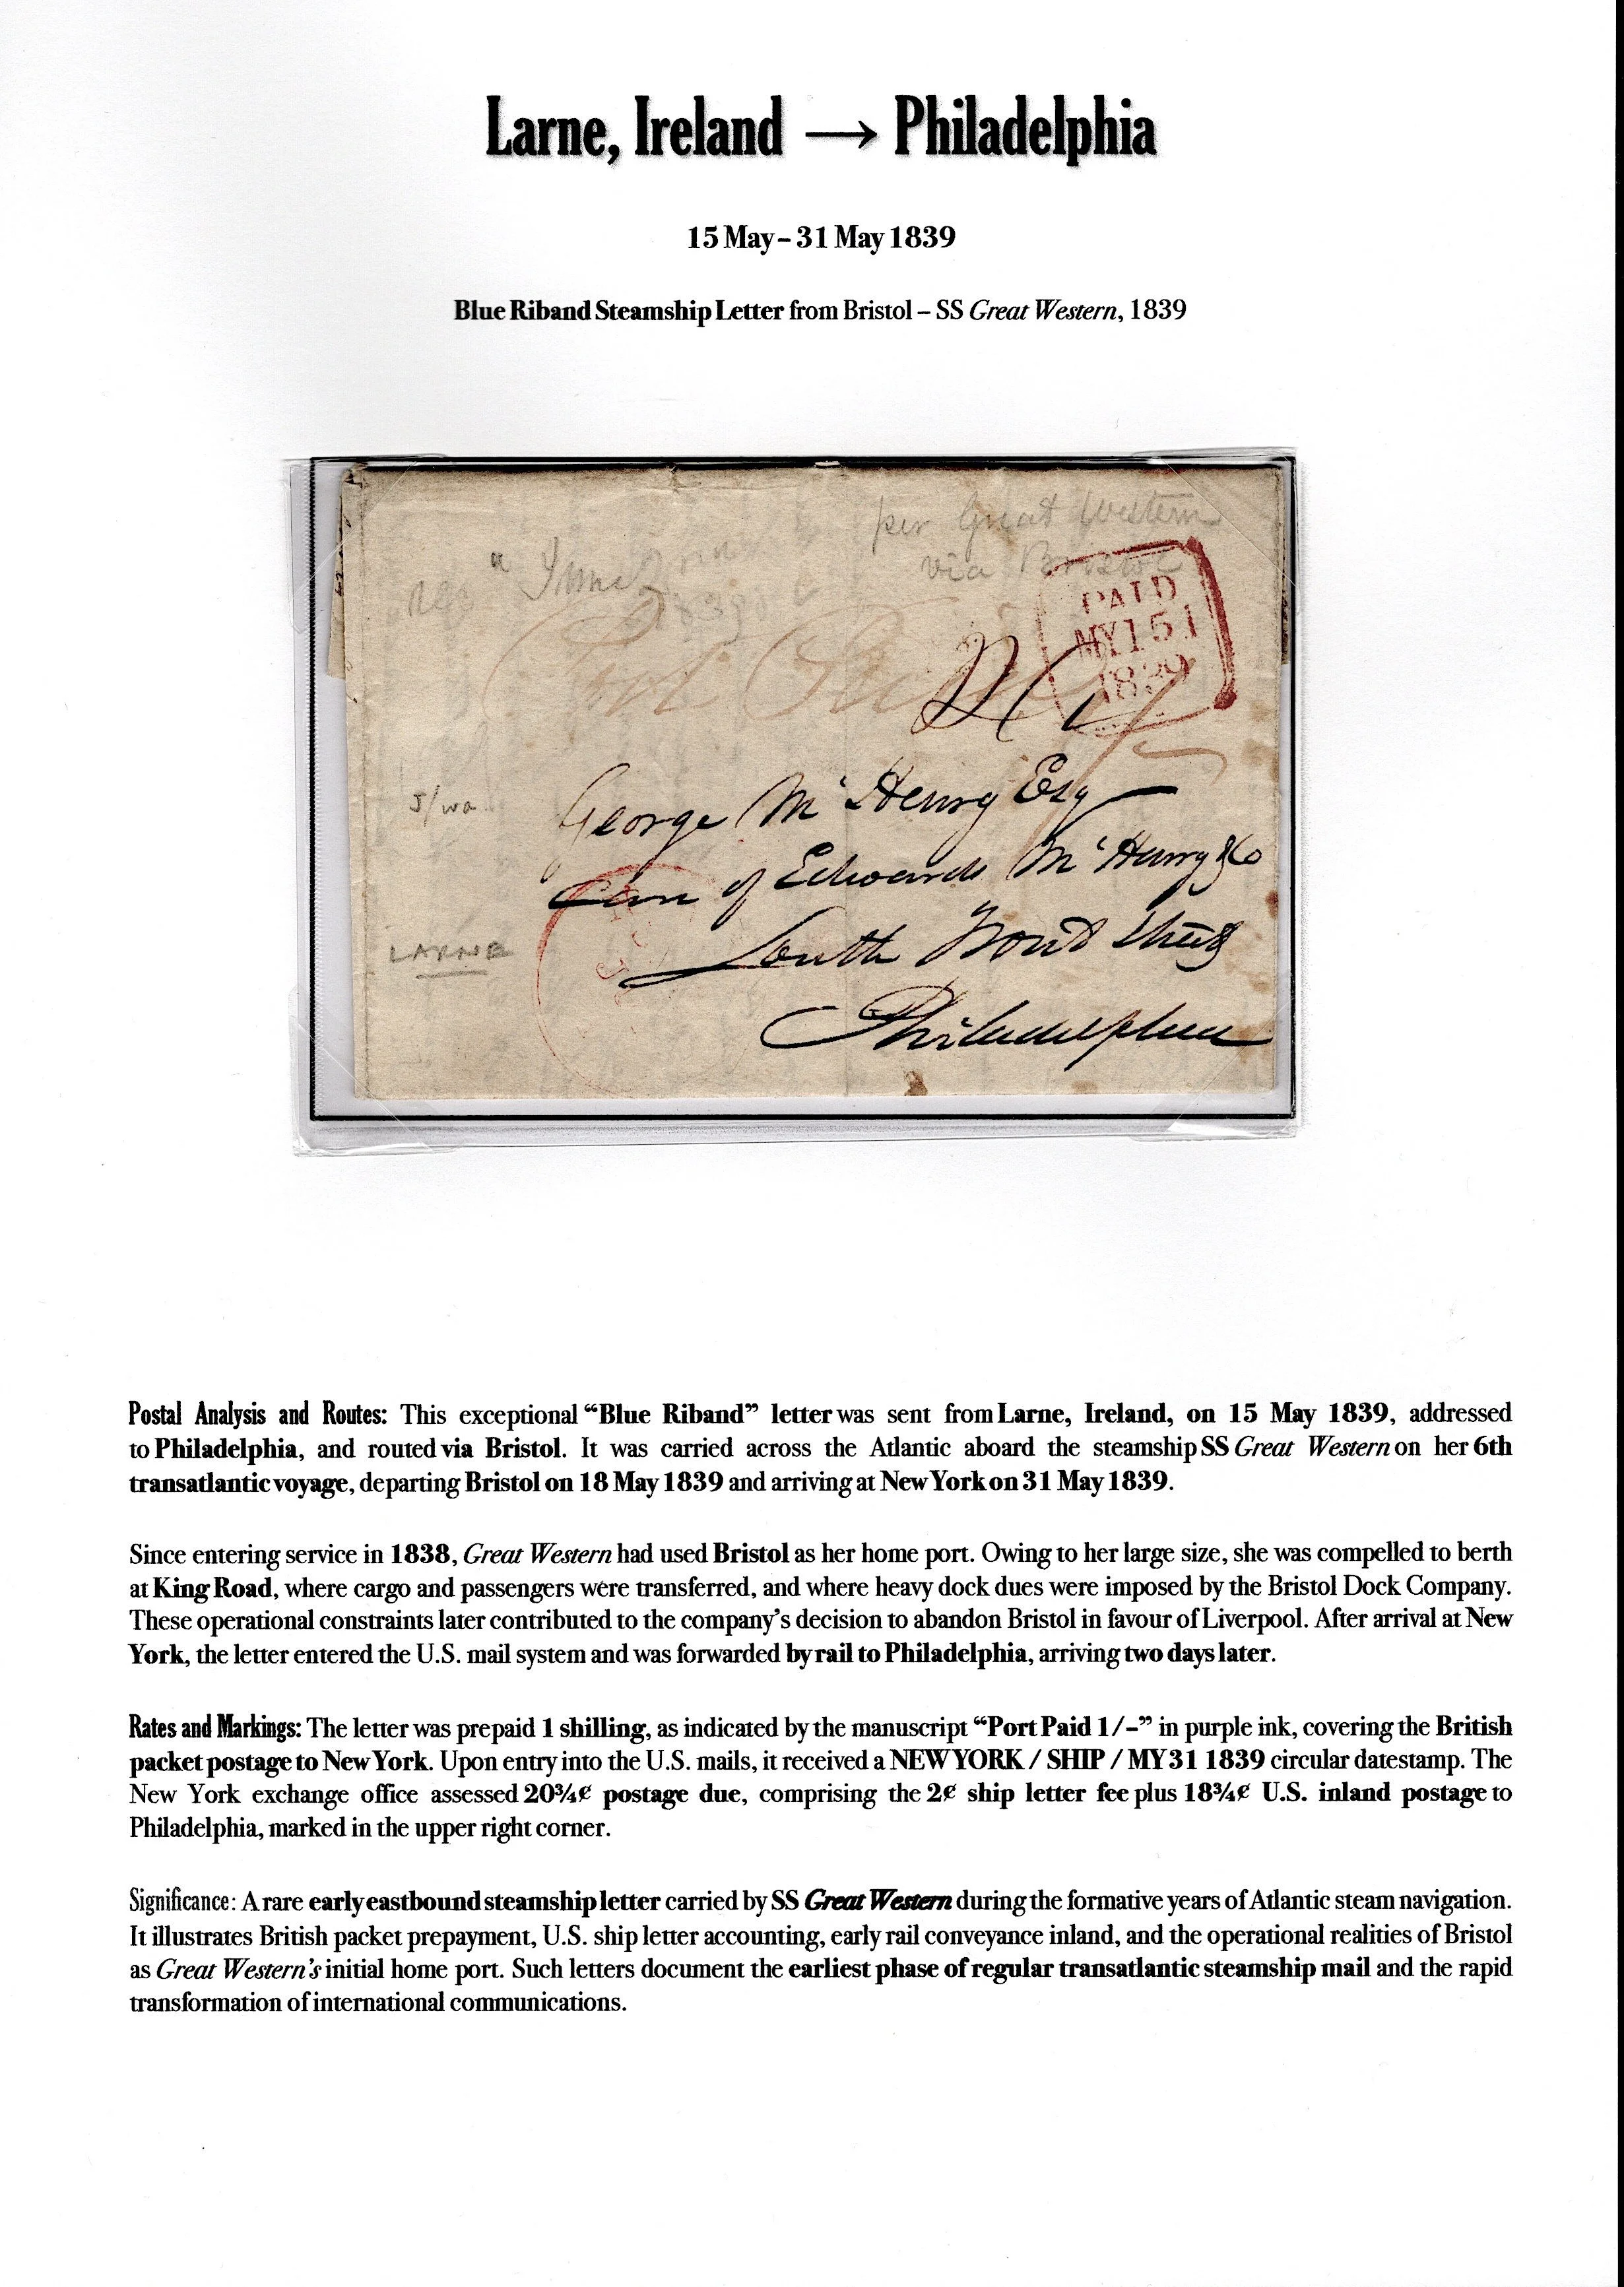 Larne, Ireland → Philadelphia
15 May – 31 May 1839
Blue Riband Steamship Letter from Bristol – SS Great Western, 1839
per Great Western
via Bristol
PAID
MY 15
1839
Post Paid
George McHenry Esq
Care of Edwards McHenry & Co
South Front Street
Philadelphia
LARNE
Postal Analysis and Routes: This exceptional “Blue Riband” letter was sent from Larne, Ireland, on 15 May 1839, addressed
to Philadelphia, and routed via Bristol. It was carried across the Atlantic aboard the steamship SS Great Western on her 6th
transatlantic voyage, departing Bristol on 18 May 1839 and arriving at New York on 31 May 1839.
Since entering service in 1838, Great Western had used Bristol as her home port. Owing to her large size, she was compelled to berth
at King Road, where cargo and passengers were transferred, and where heavy dock dues were imposed by the Bristol Dock Company.
These operational constraints later contributed to the company’s decision to abandon Bristol in favour of Liverpool. After arrival at New
York, the letter entered the U.S. mail system and was forwarded by rail to Philadelphia, arriving two days later.
Rates and Markings: The letter was prepaid 1 shilling, as indicated by the manuscript “Port Paid 1/–” in purple ink, covering the British
packet postage to New York. Upon entry into the U.S. mails, it received a NEW YORK / SHIP / MY 31 1839 circular datestamp. The
New York exchange office assessed 20¾¢ postage due, comprising the 2¢ ship letter fee plus 18¾¢ U.S. inland postage to
Philadelphia, marked in the upper right corner.
Significance: A rare early eastbound steamship letter carried by SS Great Western during the formative years of Atlantic steam navigation.
It illustrates British packet prepayment, U.S. ship letter accounting, early rail conveyance inland, and the operational realities of Bristol
as Great Western’s initial home port. Such letters document the earliest phase of regular transatlantic steamship mail and the rapid
transformation of international communications.